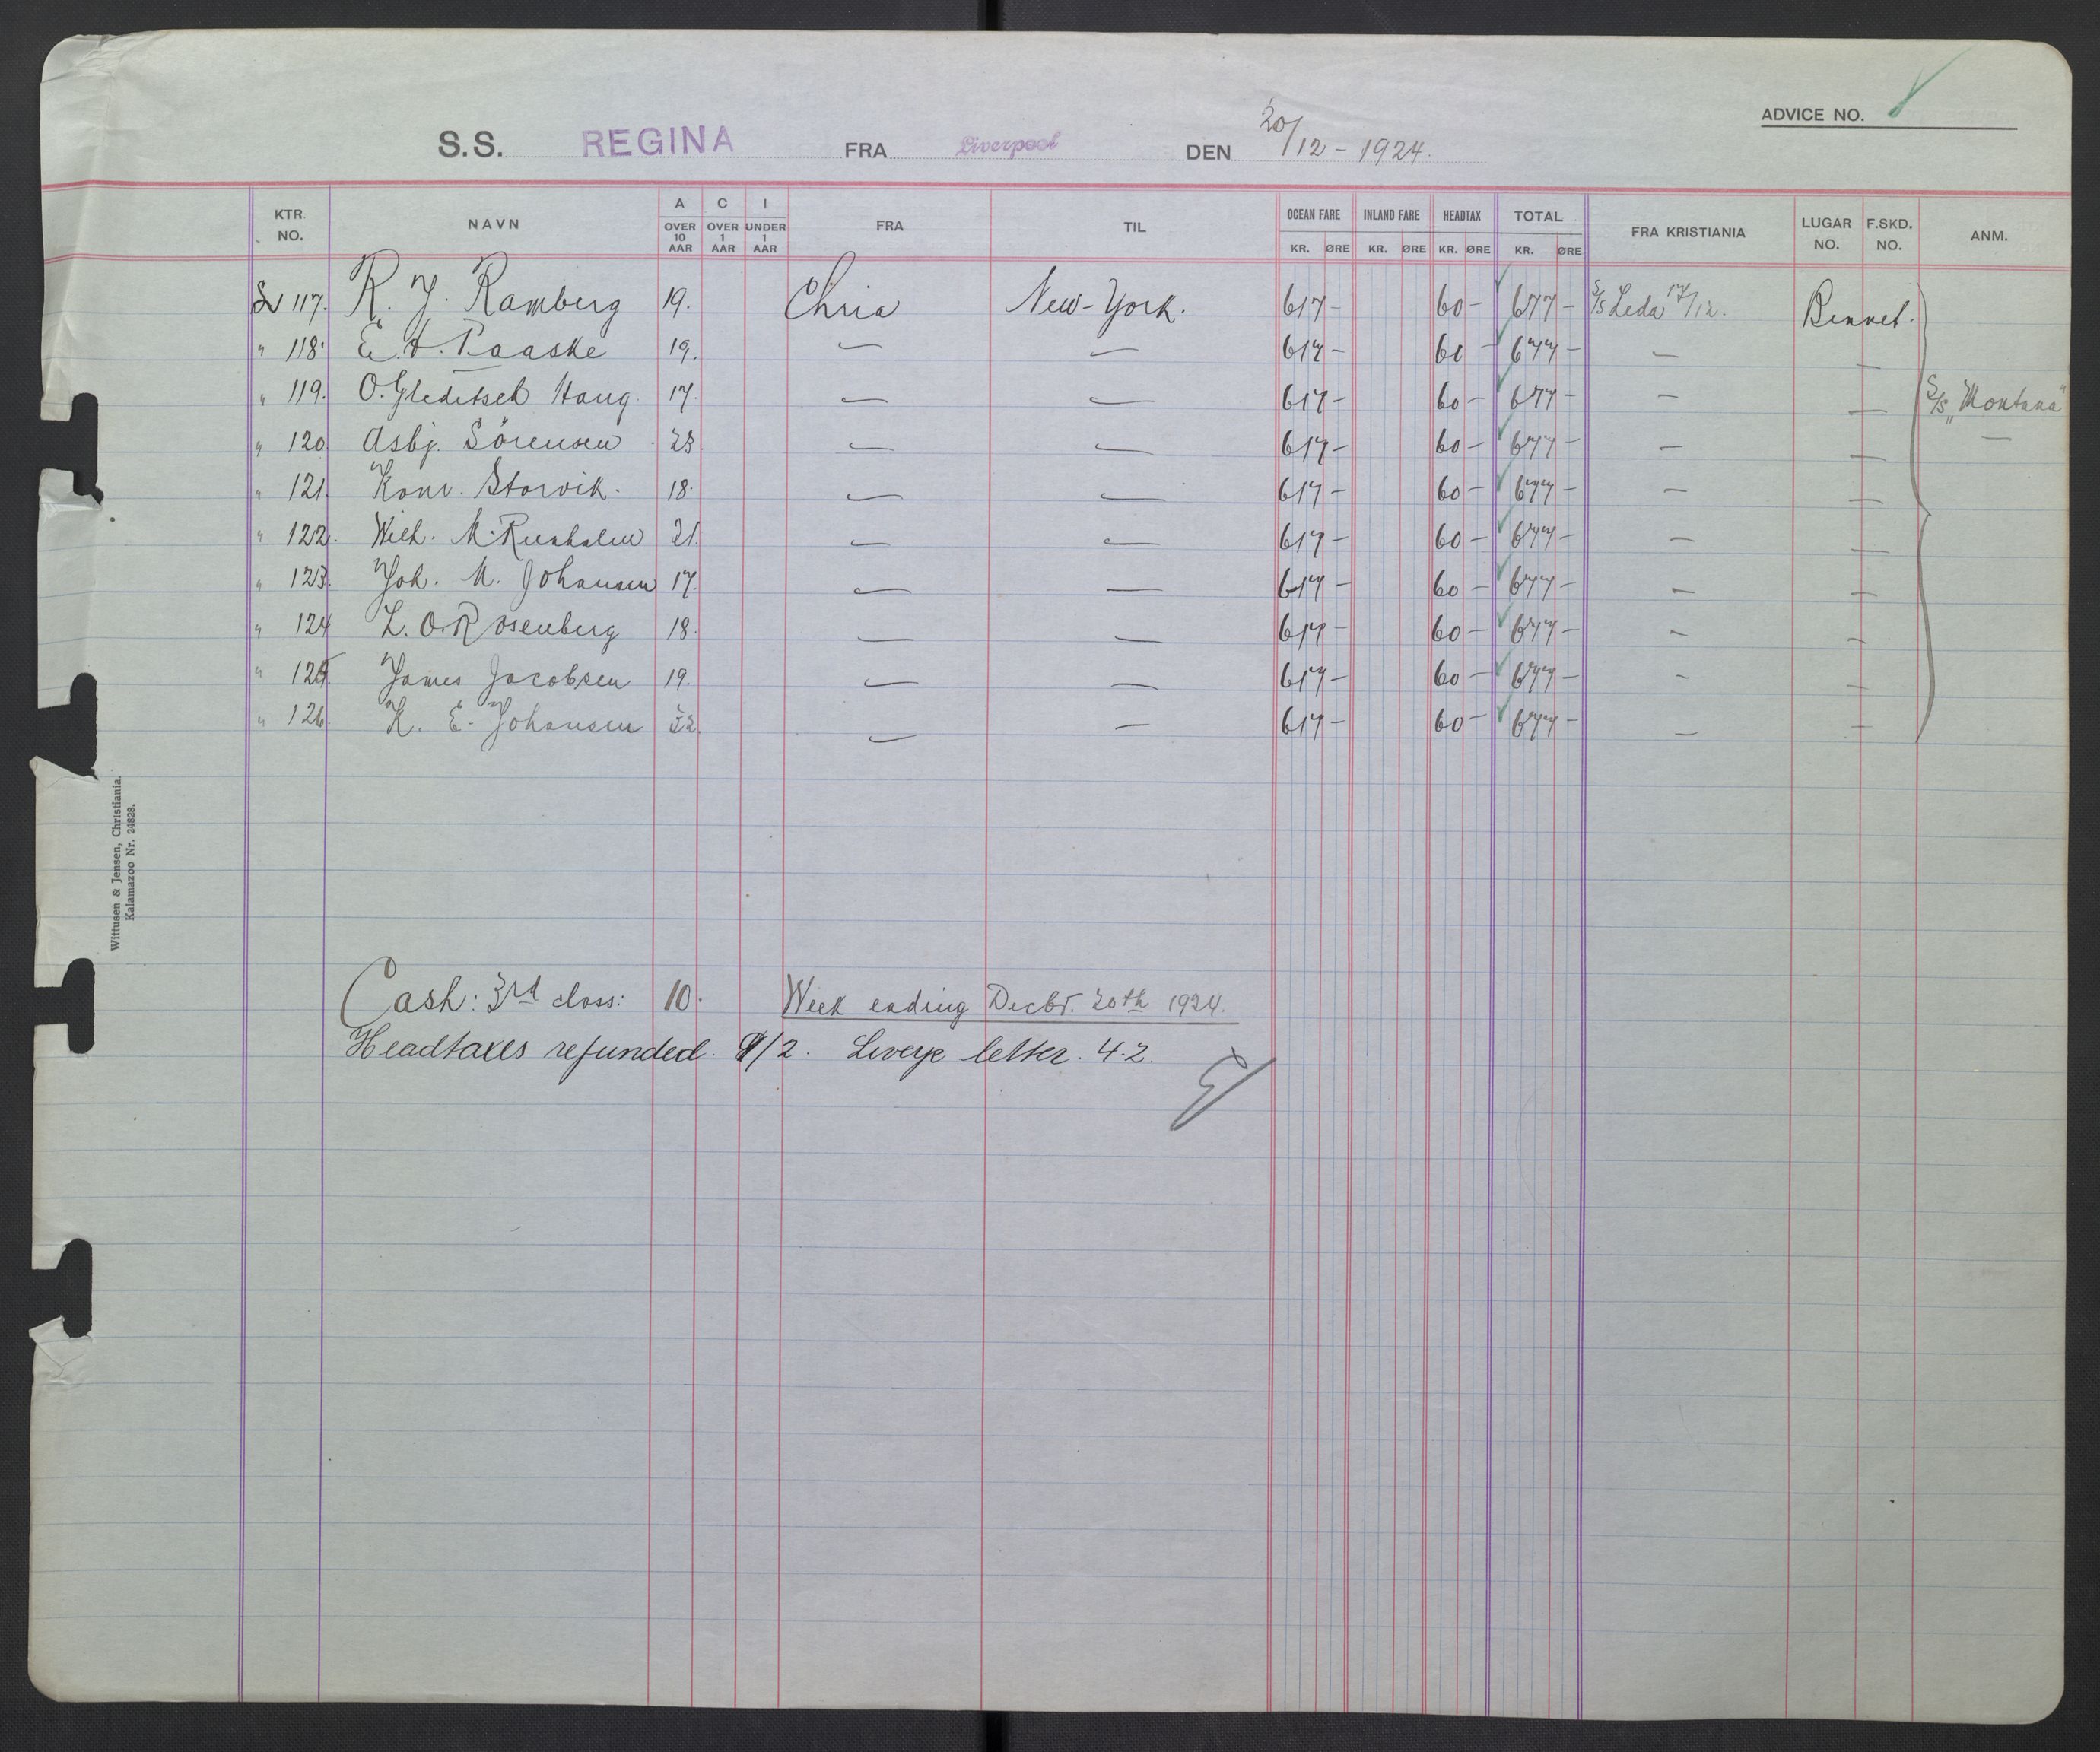 ADVICE NO.
S.S. REGINA FRA Liverpool DEN 20/12 - 1924.
KTR. NO. NAVN A OVER 10 AAR C OVER 1 AAR I UNDER 1 AAR FRA TIL OCEAN FARE KR. ØRE INLAND FARE KR. ØRE HEADTAX KR. ØRE TOTAL KR. ØRE FRA KRISTIANIA LUGAR NO. F.SKD. NO. ANM.
117. R. J. Ramberg 19. Chria New-York. 617 - 60 - 677 - S/S Leda 17/12. Bennet.
" 118. E. A. Paaske 19. — — 617 - 60 - 677 - — —
" 119. O. Gleditsch Haug 17. — — 617 - 60 - 677 - — — S/S "Montana"
" 120. Asbj. Sörensen 23. — — 617 - 60 - 677 - — — —
" 121. Konr. Storvik. 18. — — 617 - 60 - 677 - — —
" 122. Wilh. M. 21. — — 617 - 60 - 677 - — —
" 123. Joh. M. Johansen 17. — — 617 - 60 - 677 - — —
" 124 L. O. Rosenberg 18. — — 617 - 60 - 677 - — —
" 125. James Jacobsen 19. — — 617 - 60 - 677 - — —
" 126. K. E. Johansen — — 617 - 60 - 677 - — —
Cash: 3rd class: 10. Week ending Decbr. 20th 1924.
Headtaxes refunded 9/2. Liverp letter 4.2.
Wittusen & Jensen, Christiania.
Kalamazoo Nr. 24828.